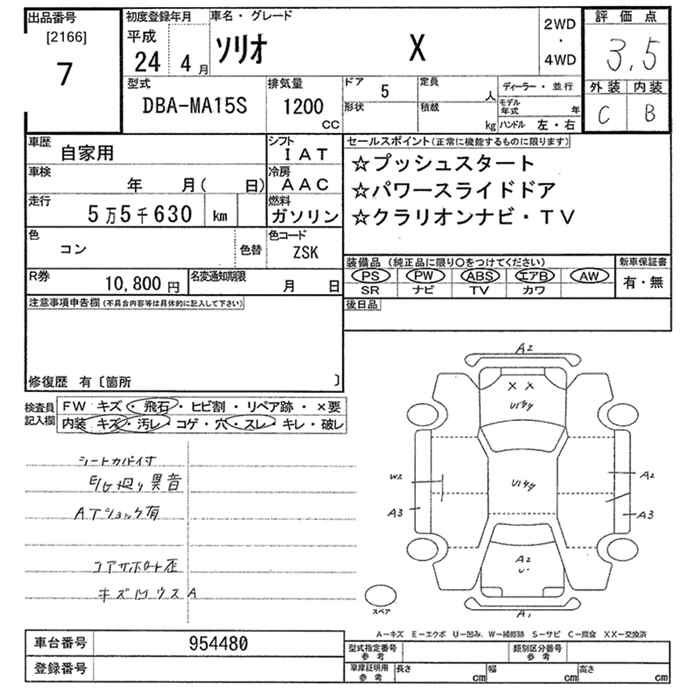 出品番号
[2166]
7
初度登録年月
平成
24 4 月
車名・グレード
ソリオ X
2WD
・
4WD
評価点
3.5
外装 内装
C B
型式
DBA-MA15S
排気量
1200
CC
ドア 5
形状
定員 人
積載 kg
ディーラー・並行
モデル年式 年
ハンドル 左・右
車歴
自家用
シフト
IAT
車検
年 月( 日)
冷房
AAC
走行
5万5千630 km
燃料
ガソリン
色
コン
色替
色コード
ZSK
R券
10,800 円
名変通知期限
月 日
セールスポイント(正常に機能するものに限ります)
☆プッシュスタート
☆パワースライドドア
☆クラリオンナビ・TV
装備品 (純正品に限り○をつけてください)
PS PW ABS エアB AW
SR ナビ TV カワ
新車保証書
有・無
後日品
注意事項申告欄(不具合内容等は具体的に記入して下さい)
修復歴 有〔箇所 〕
検査員
記入欄
FW キズ・飛石・ヒビ割・リペア跡・×要
内装 キズ・汚レ・コゲ・穴・スレ・キレ・破レ
シートカバー付
E/G廻り異音
ATショック有
コアサポート歪
キズ凹ウスA
A2
X X
Uキク
W2
A3
Uキク
A2
A3
A2
U
A1
スペア
A-キズ E-エクボ U-凹み W-補修跡 S-サビ C-腐食 XX-交換済
車台番号
954480
登録番号
型式指定番号
参考
類別区分番号
参考
車庫証明用
参考
長さ cm
幅 cm
高さ cm